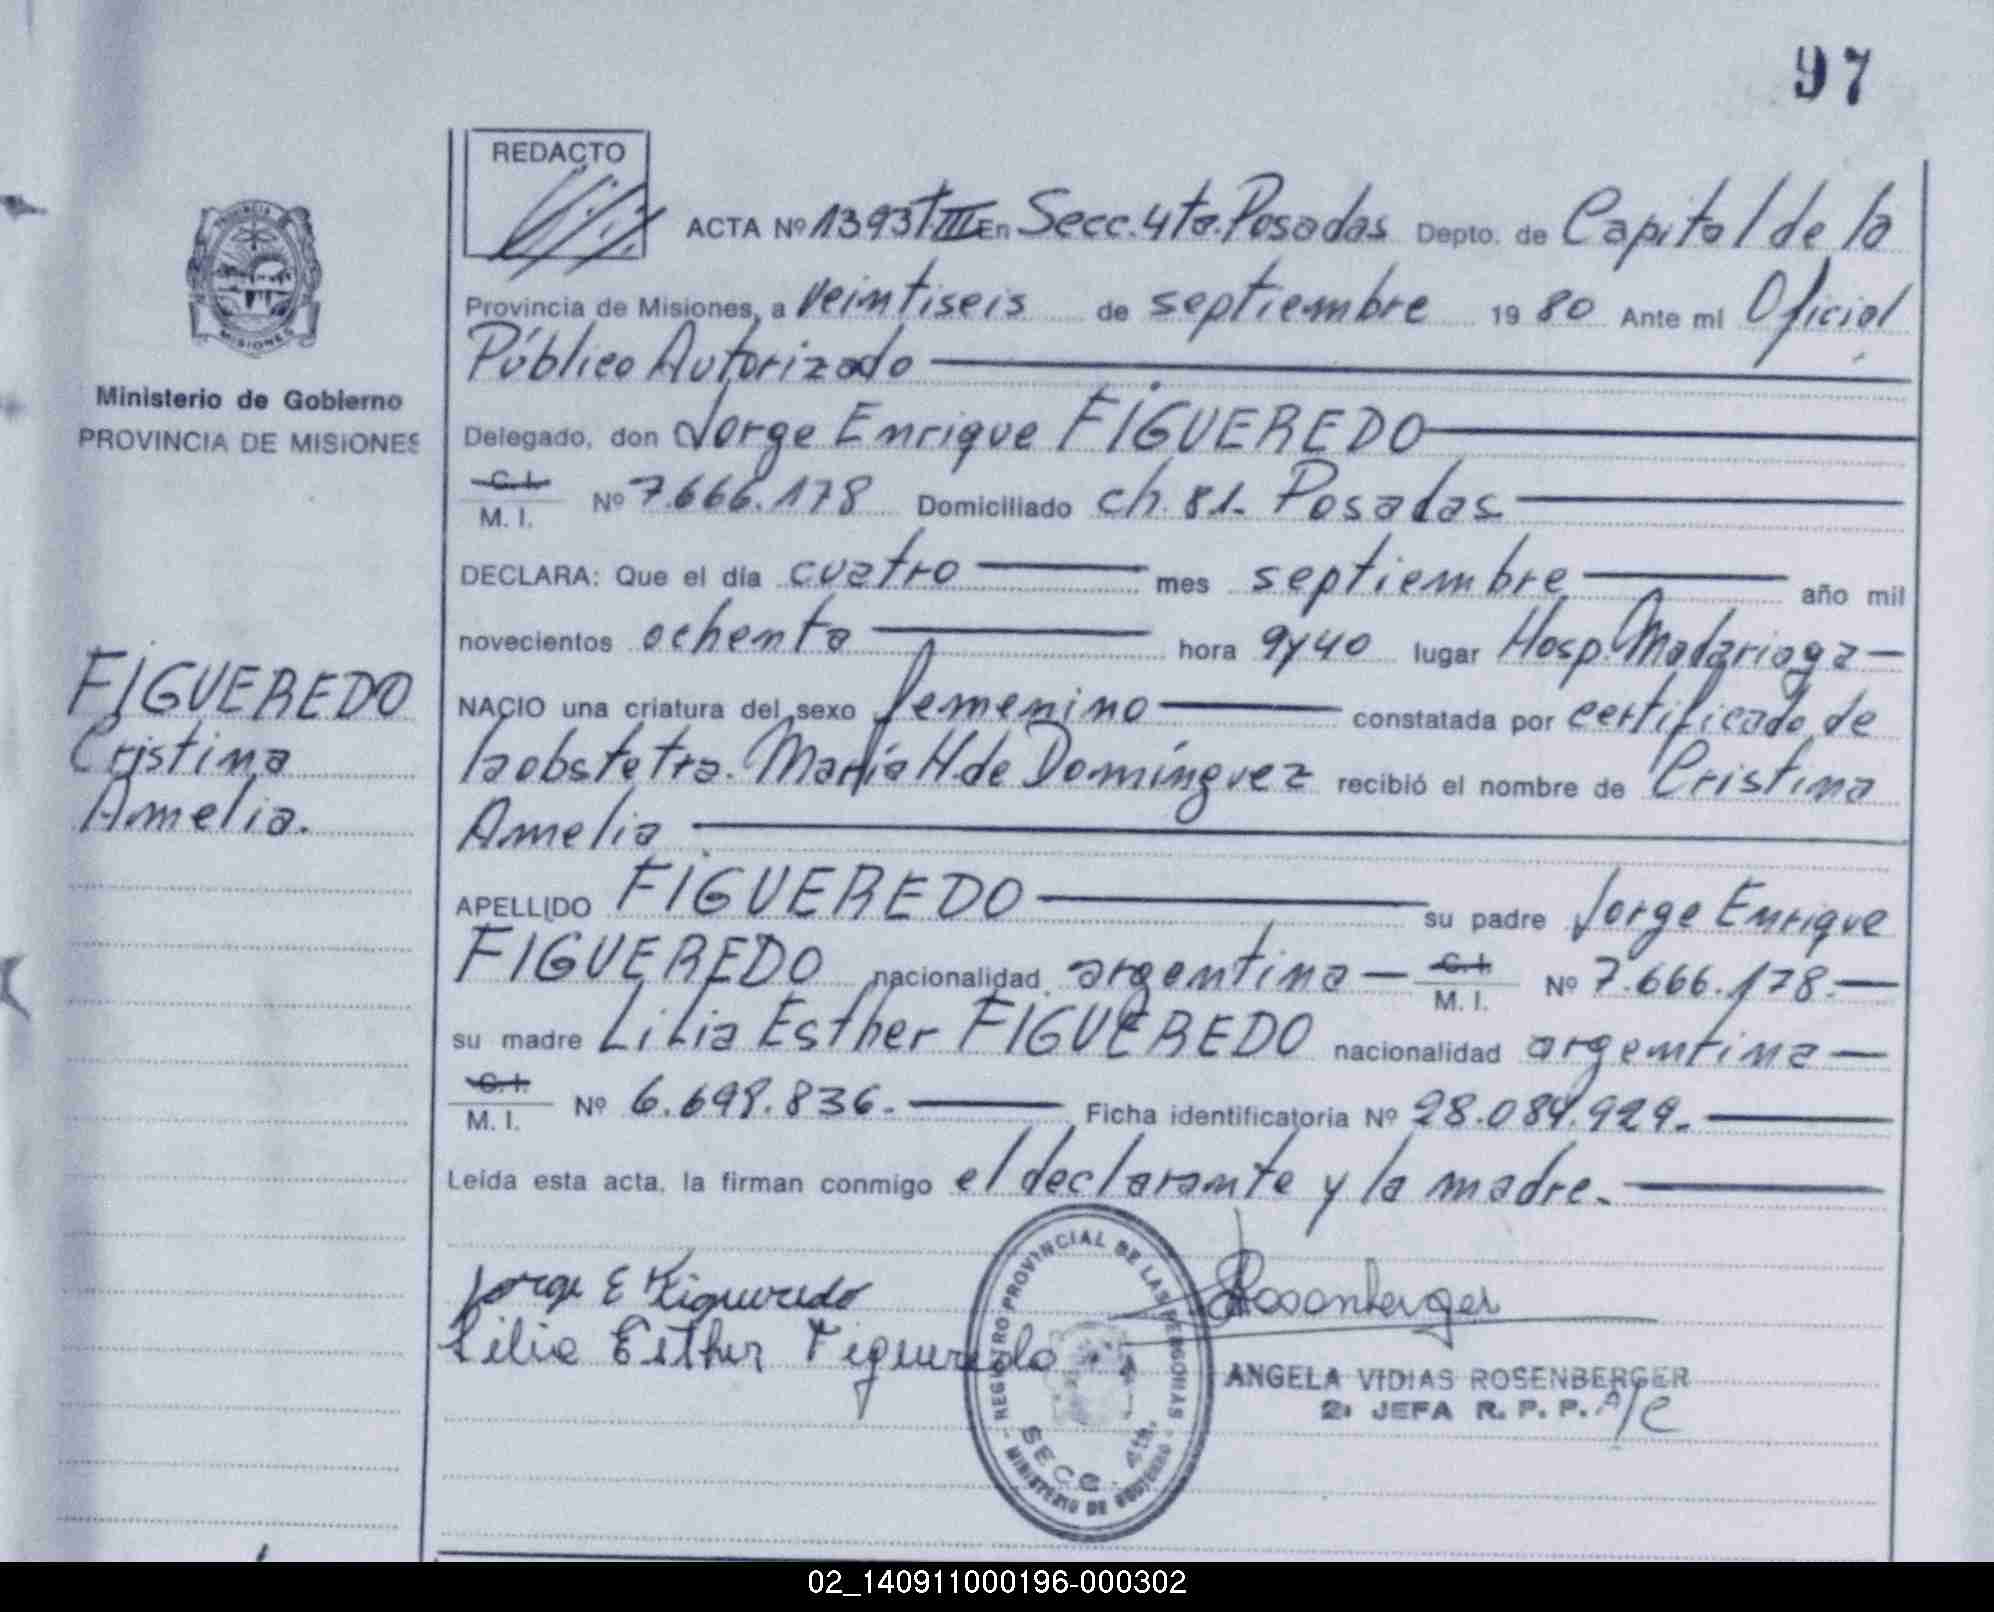 97
REDACTO
ACTA Nº 1393 T.III En Secc. 4ta. Posadas Depto. de Capital de la
Provincia de Misiones, a veintiseis de septiembre 19 80 Ante mi Oficial
Público Autorizado
Delegado, don Jorge Enrique FIGUEREDO
C. I.
M. I. Nº 7.666.178 Domiciliado ch. 81. Posadas
DECLARA: Que el día cuatro mes septiembre año mil
novecientos ochenta hora 9y40 lugar Hosp. Madariaga
NACIO una criatura del sexo femenino constatada por certificado de
la obstetra. María H. de Domínguez recibió el nombre de Cristina
Amelia
APELLIDO FIGUEREDO su padre Jorge Enrique
FIGUEREDO nacionalidad argentina C. I.
M. I. Nº 7.666.178.
su madre Lilia Esther FIGUEREDO nacionalidad argentina
C. I.
M. I. Nº 6.698.836. Ficha identificatoria Nº 28.084.929.
Leída esta acta, la firman conmigo el declarante y la madre.
Jorge E Figueredo
Lilia Esther Figueredo
Rosenberger
ANGELA VIDIAS ROSENBERGER
2ª JEFA R. P. P. A/C
REGISTRO PROVINCIAL DE LAS PERSONAS
SECC. 4ta.
MINISTERIO DE GOBIERNO
PROVINCIA
MISIONES
Ministerio de Gobierno
PROVINCIA DE MISIONES
FIGUEREDO
Cristina
Amelia.
02_140911000196-000302